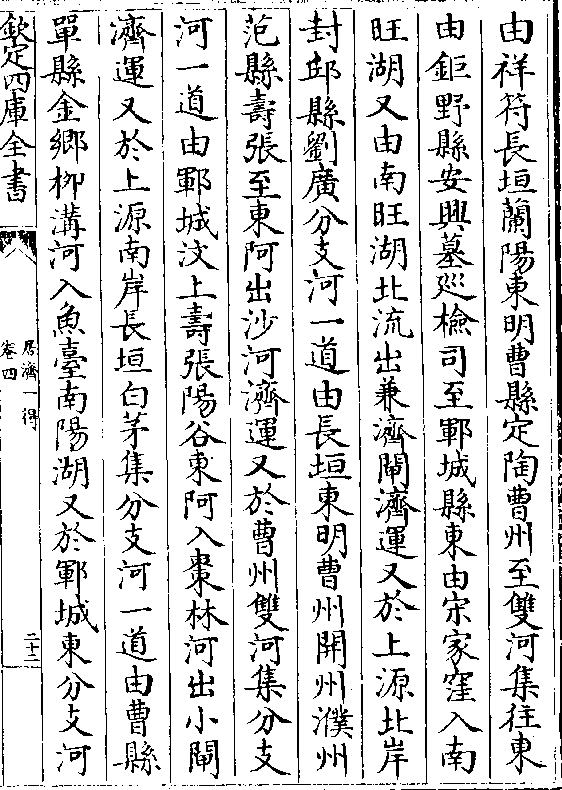 由祥符長垣蘭陽東明曹縣定陶曹州至雙河集往東
由鉅野縣安興墓廵檢司至鄆城縣東由宋家窪入南
旺湖又由南旺湖北流出兼濟閘濟運又於上源北岸
封邱縣劉廣分支河一道由長垣東明曹州開州濮州
范縣壽張至東阿出沙河濟運又於曹州雙河集分支
河一道由鄆城汶上壽張陽谷東阿入棗林河出小閘
濟運又於上源南岸長垣白茅集分支河一道由曹縣
單縣金鄉栁溝河入魚臺南陽湖又於鄆城東分支河
欽定四庫全書
居濟一得
卷四
二十二